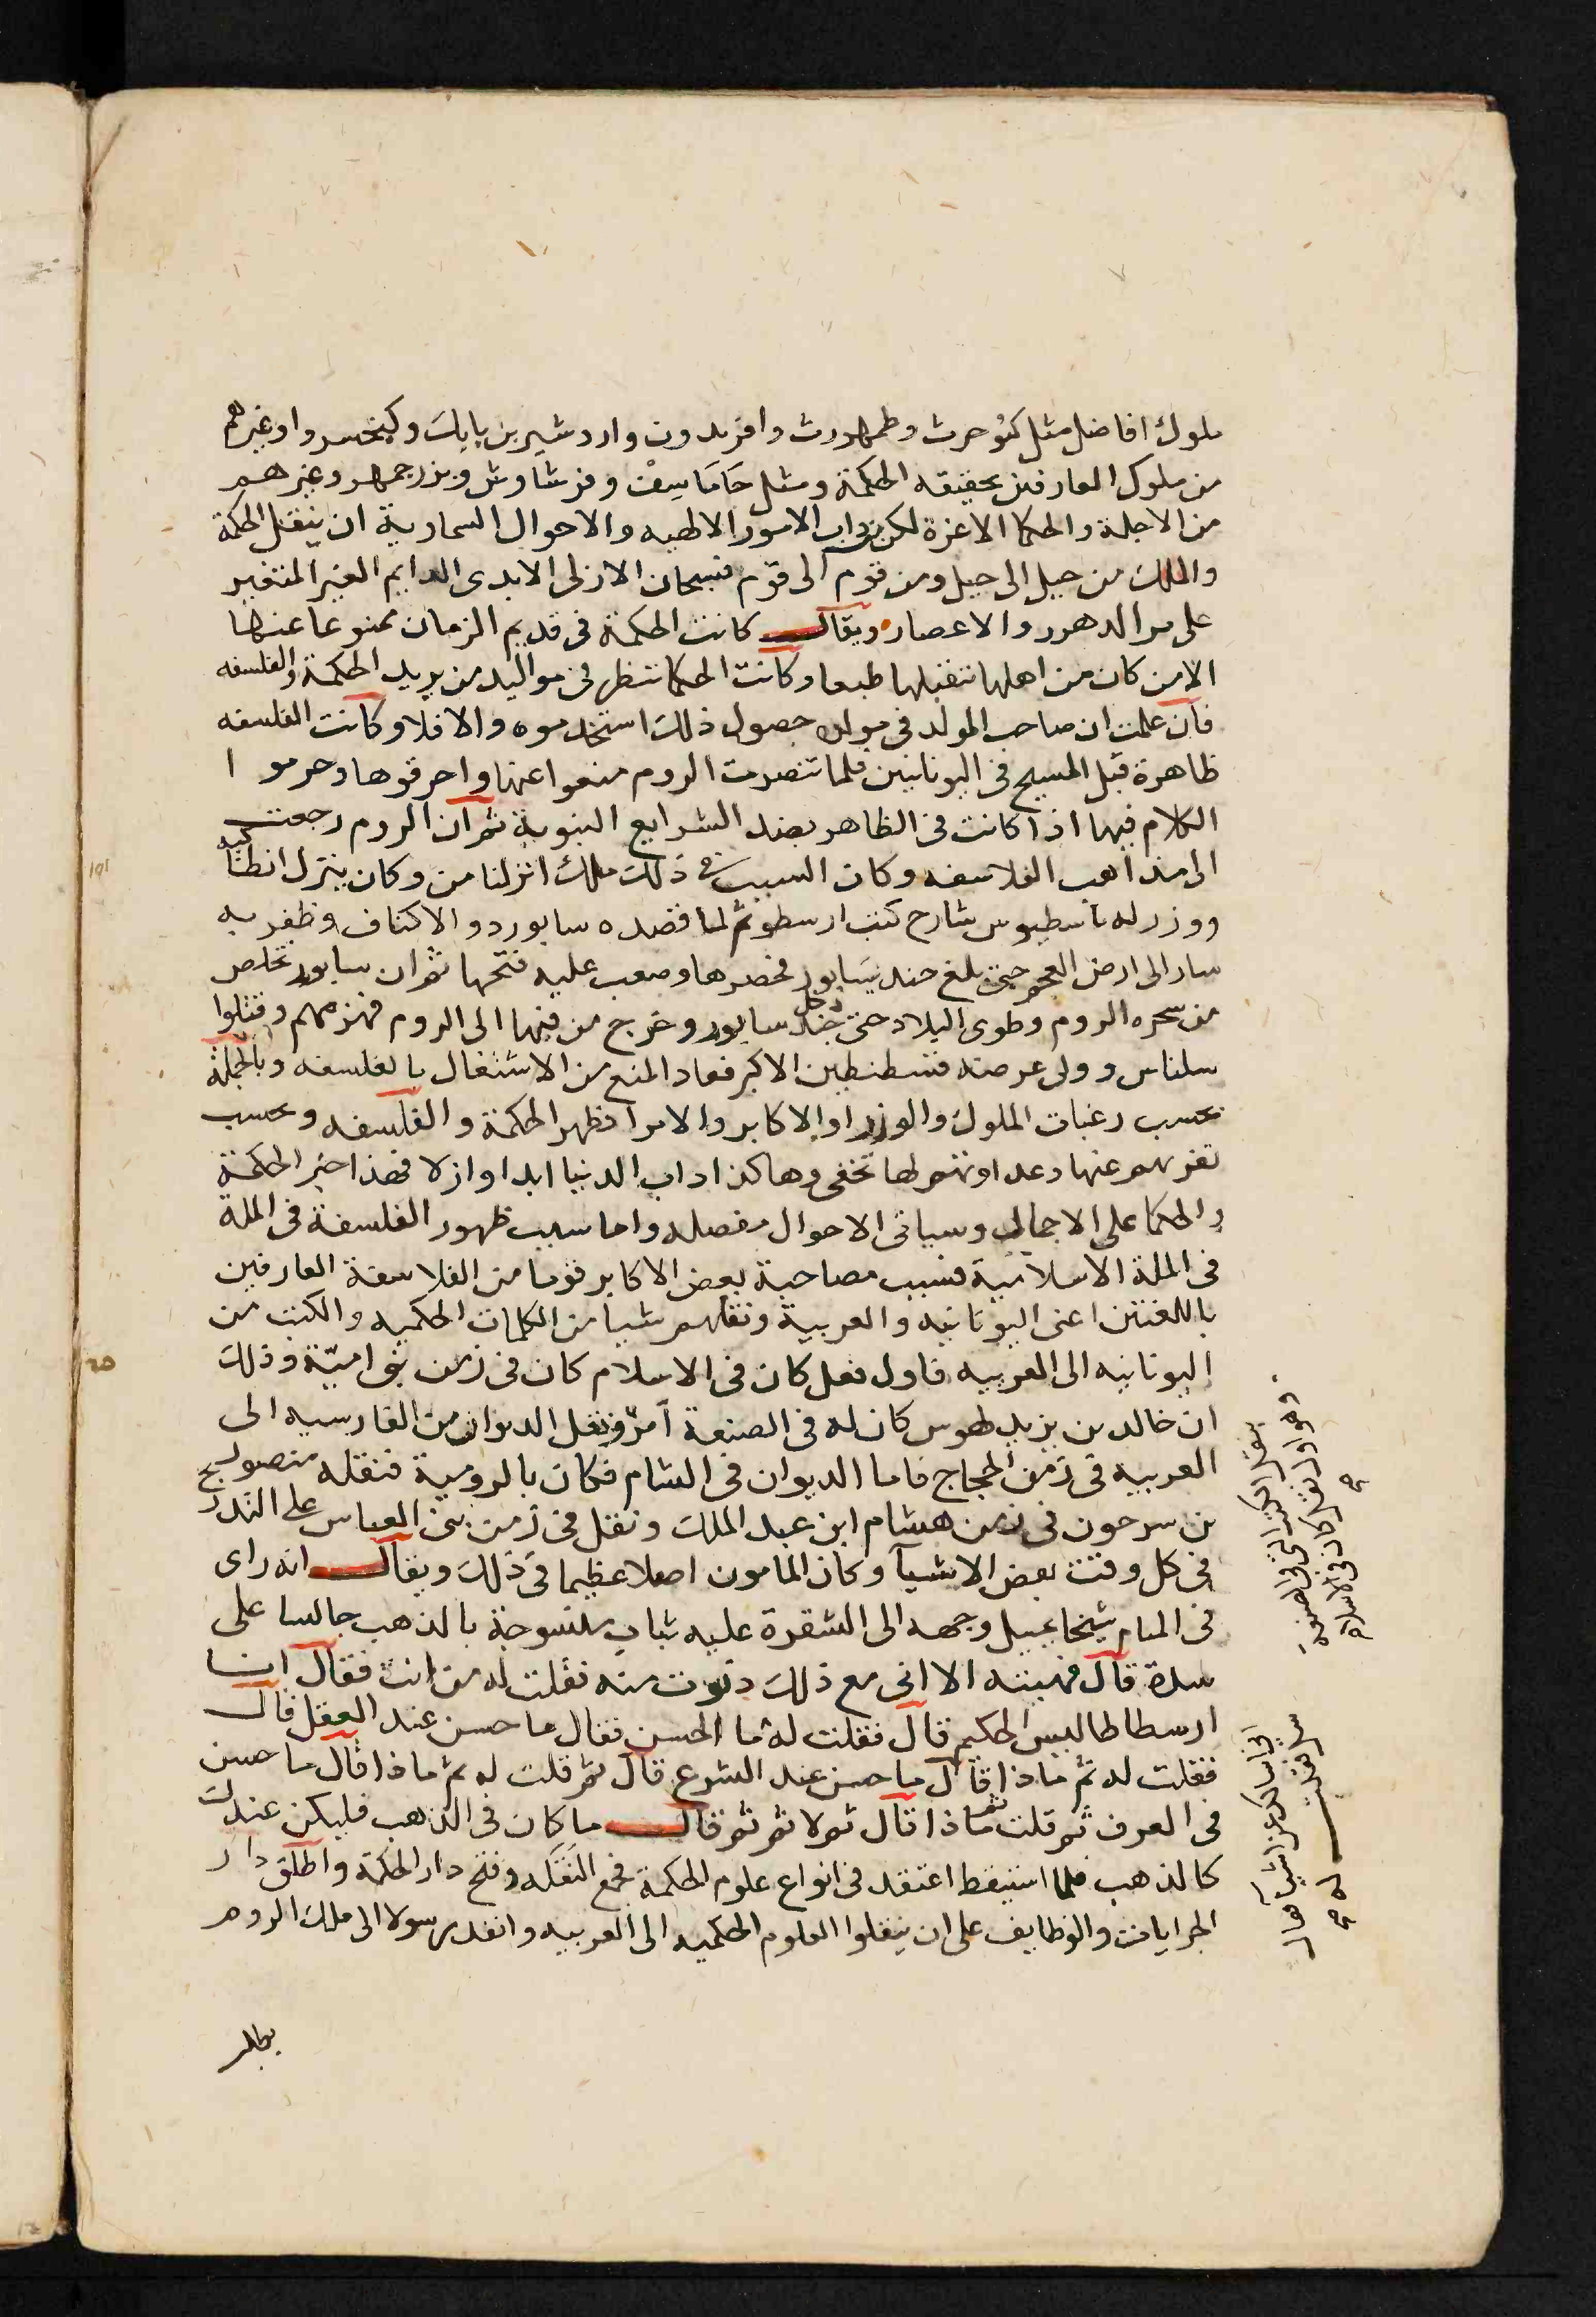 ملوك افاضل مثل كيومرث وطمهورث وافريدون واردشير بن بابك وكيخسرو او غيرهم
من ملوك العارفين بحقيقه الحكمة ومثل جَامَاسِفْ وفرشاوشر وبزرجمهر وغيرهم
من الاجلة والحكما الاعزة لكن من داب الامور الالهيه والاحوال السماوية ان ينقل الحكمة
والملك من جيل الى جيل ومن قوم الى قوم فسبحان الازلى الابدى الدايم الغير المتغير
على مر الدهور والاعصار ويقال كانت الحكمة فى قديم الزمان ممنوعا عنها
الا من كان من اهلها يتقبلها طبعا وكانت الحكما تنظر فى مواليد من يريد الحكمة والفلسفه
فان علمت ان صاحب المولد فى مولده حصول ذلك استخدموه والا فلا وكانت الفلسفه
ظاهرة قبل المسيح فى اليونانيين فلما تنصرت الروم منعوا عنها واحرقوها وحرموا
الكلام فيها اذا كانت فى الظاهر بضد الشرايع النبوية ثم ان الروم رجعت
الى مذاهب الفلاسفه وكان السبب فى ذلك ملك انزلنا من وكان ينزل انطاكيه
ووزر له ثاسطيوس شارح كتب ارسطو ثم لما قصده سابور ذو الاكتاف وظفر به
سار الى ارض العجم حتى بلغ جنديسَابور فحصرها وصعب عليه فتحها ثم ان سابور تخلص
من سحره الروم وطوى البلاد حتى دخل جند سابور وخرج من فيها الى الروم فهزمهم وقتلوا
سلناس وولى عرضه قسطنطين الاكبر فعاد المنع من الاشتغال بالفلسفه وبالجملة
بحسب رغبات الملوك والوزرا والاكابر والامرا تظهر الحكمة والفلسفه وبحسب
نفرتهم عنها وعداوتهم لها تخفى وهاكذا داب الدنيا ابدا وازلا فهذا خبر الحكمة
والحكما على الاجمال وسياتى الاحوال مفصله واما سبب ظهور الفلسفة فى الملة
فى الملة الاسلامية فسبب مصاحبة بعض الاكابر قوما من الفلاسفة العارفين
باللغتين اعنى اليونانيه والعربية ونقلهم شيا من الكلمات الحكميه والكتب من
اليونانيه الى العربيه فاول نقل كان فى الاسلام كان فى زمن بنى اميّة وذلك
ان خالد بن يزيد طوس كان له فى الصنعة امرٌ ونقل الديوان من الفارسيه الى
العربيه فى زمن الحجاج فاما الديوان فى الشام فكان بالرومية فنقله منصور
بن سرحون فى زمن هشام ابن عبد الملك ونقل فى زمن بنى العباس على التدريج
فى كل وقت بعض الاشيآ وكان المامون اصلا عظيما فى ذلك ويقال انه راى
فى المنام شيخا يميل وجهه الى الشقرة عليه ثياب منسوجة بالذهب جالسا على
سدة قال فهبته الا انى مع ذلك دنوت منه فقلت له من انت فقال انا
ارسطاطاليس الحكيم قال فقلت له ما الحسن فقال ما حسن عند العقل قال
فقلت له ثم ماذا قال ما حسن عند الشرع قال ثم قلت له ثم ماذا قال ما حسن
فى العرف ثم قلت ثم ماذا قال ثم لا ثم ثم قال ما كان فى الذهب فليكن عندك
كالذهب فلما استيقظ اعتقد فى انواع علوم الحكمة فجمع النَقَله وفتح دار الحكمة واطلق دار
الجرايات والوظايف على ان ينقلوا العلوم الحكميه الى العربيه وانفد رسولا الى ملك الروم
بطلب
وهو اول نقل كان فى الاسلام